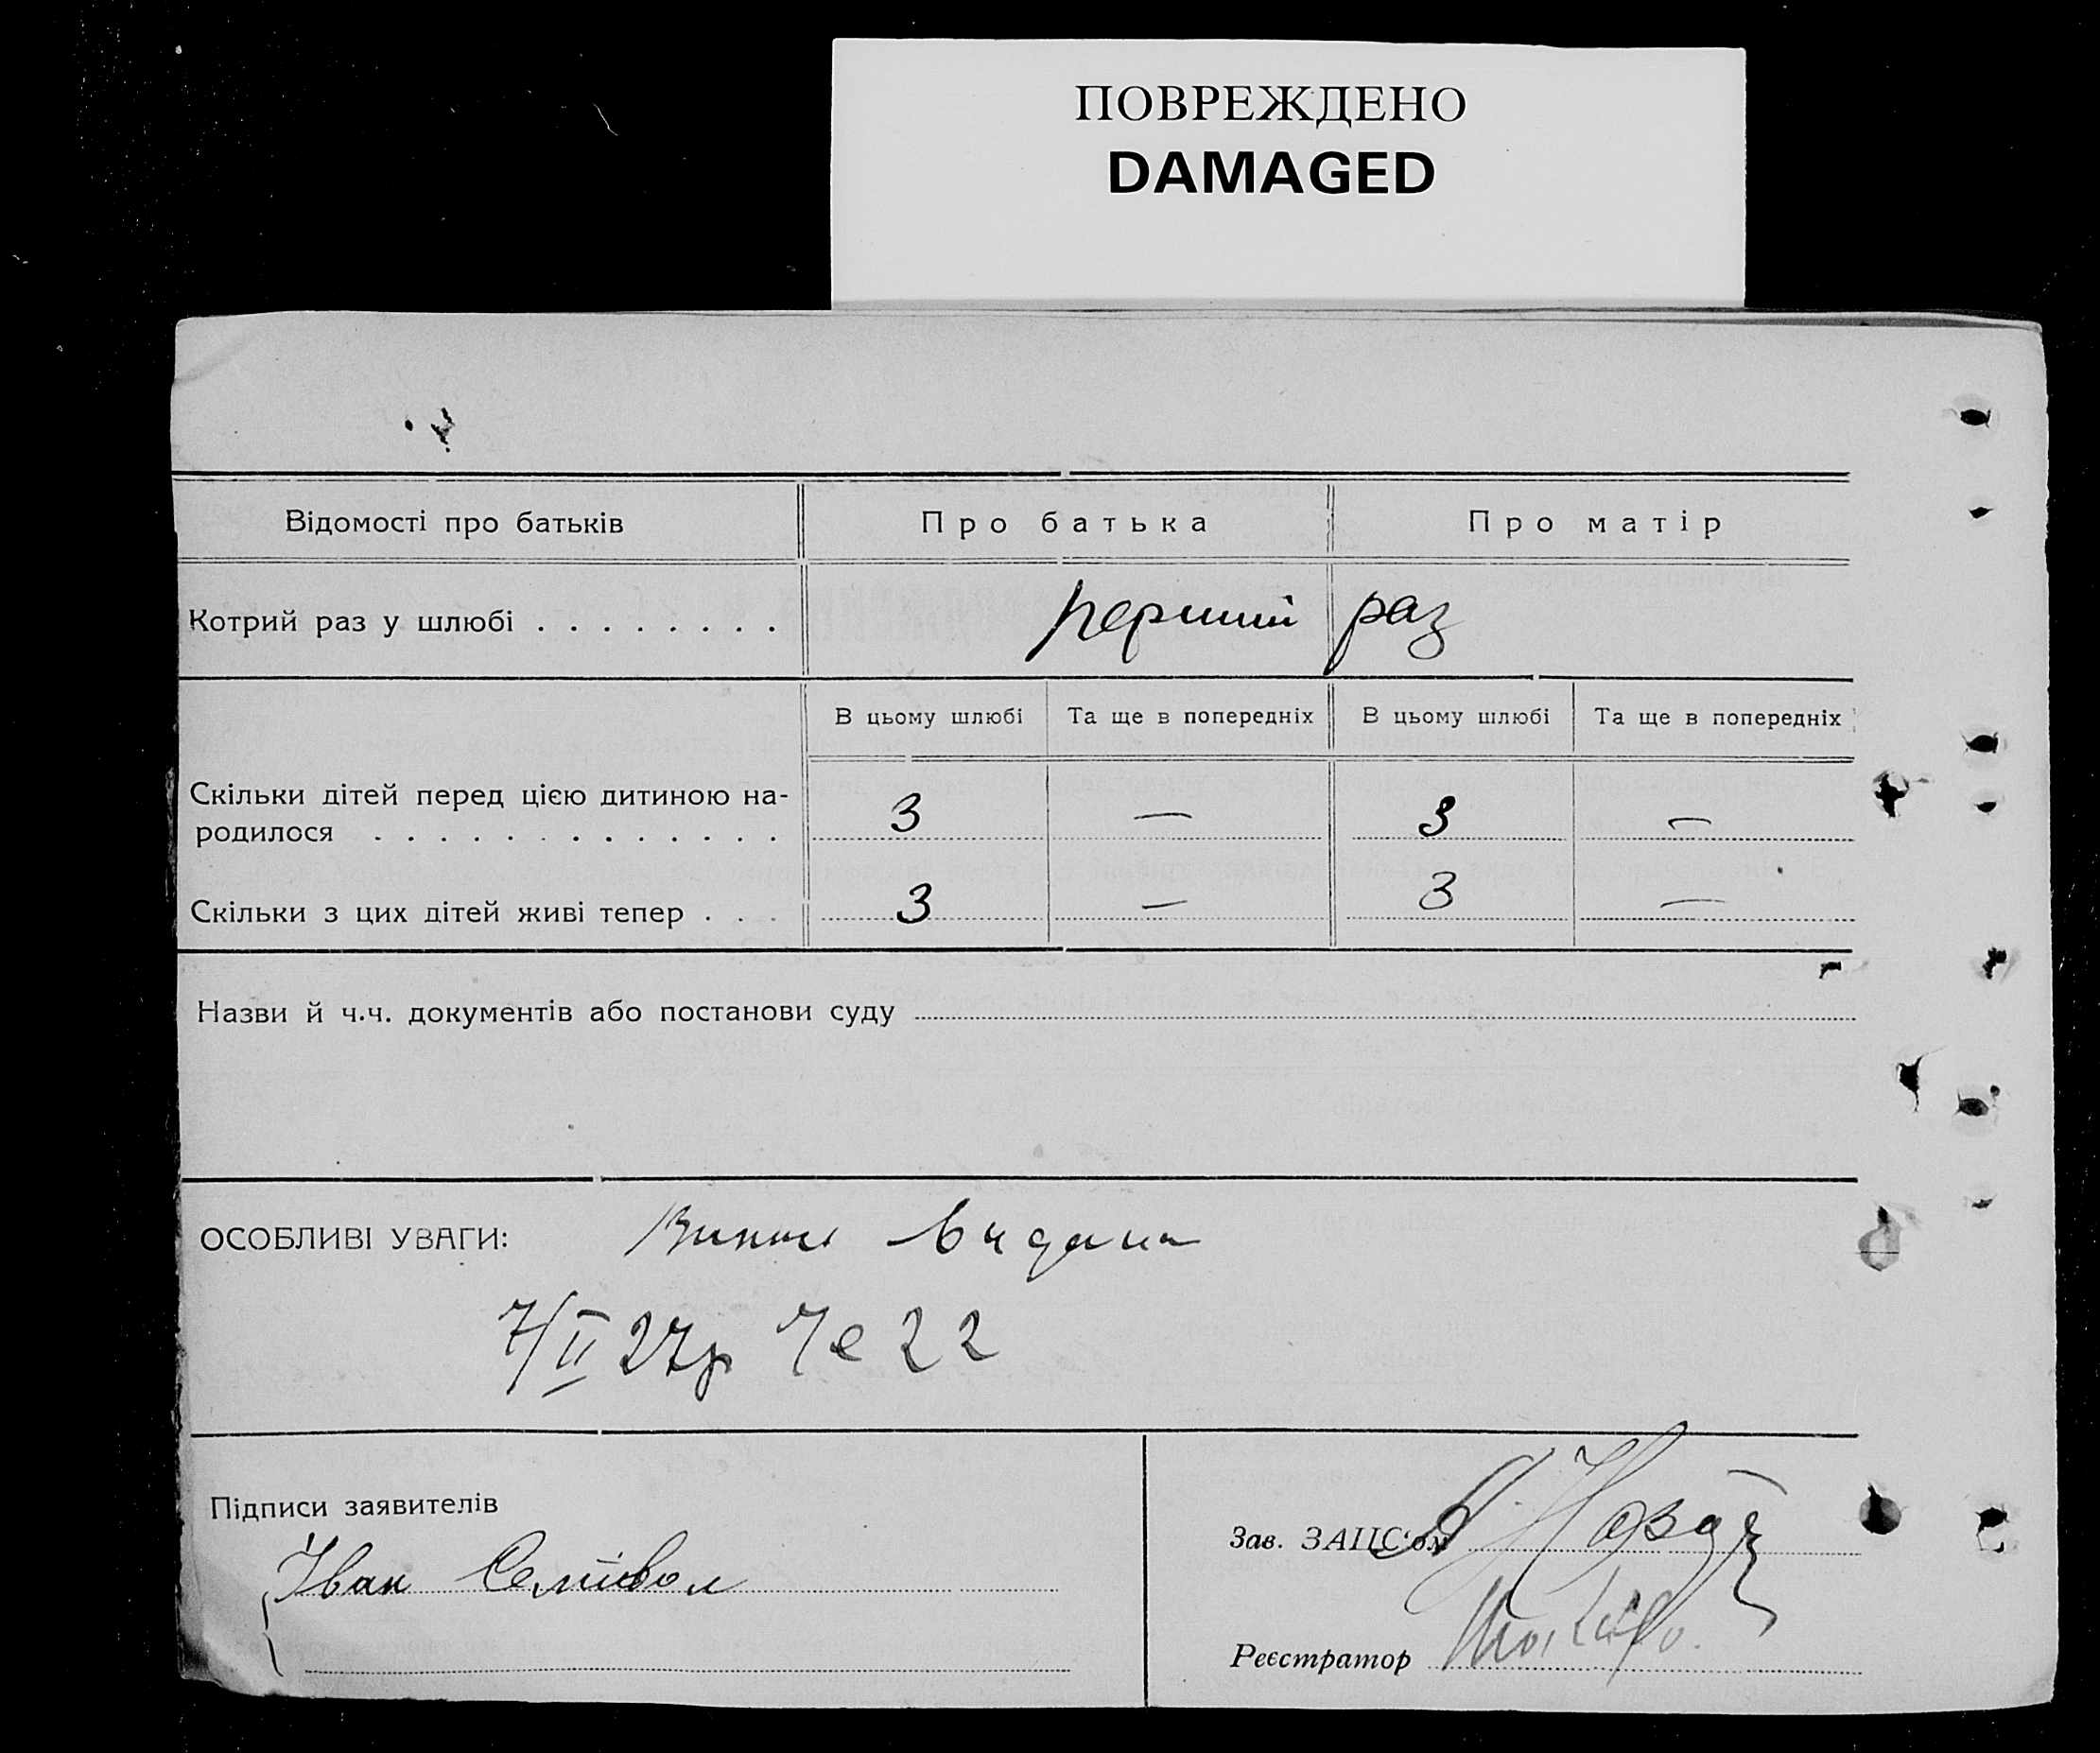 ПОВРЕЖДЕНО
DAMAGED
Відомості про батьків Про батька Про матір
Котрий раз у шлюбі . . . . . . . . перший раз
В цьому шлюбі Та ще в попередніх В цьому шлюбі Та ще в попередніх
Скільки дітей перед цією дитиною на-
родилося . . . . . . . . . . . . . 3 — 3 —
Скільки з цих дітей живі тепер . . . 3 — 3 —
Назви й ч.ч. документів або постанови суду
ОСОБЛИВІ УВАГИ: видана
7/II 27р 22
Підписи заявителів
Зав. ЗАГС'ом
Іван
Реєстратор